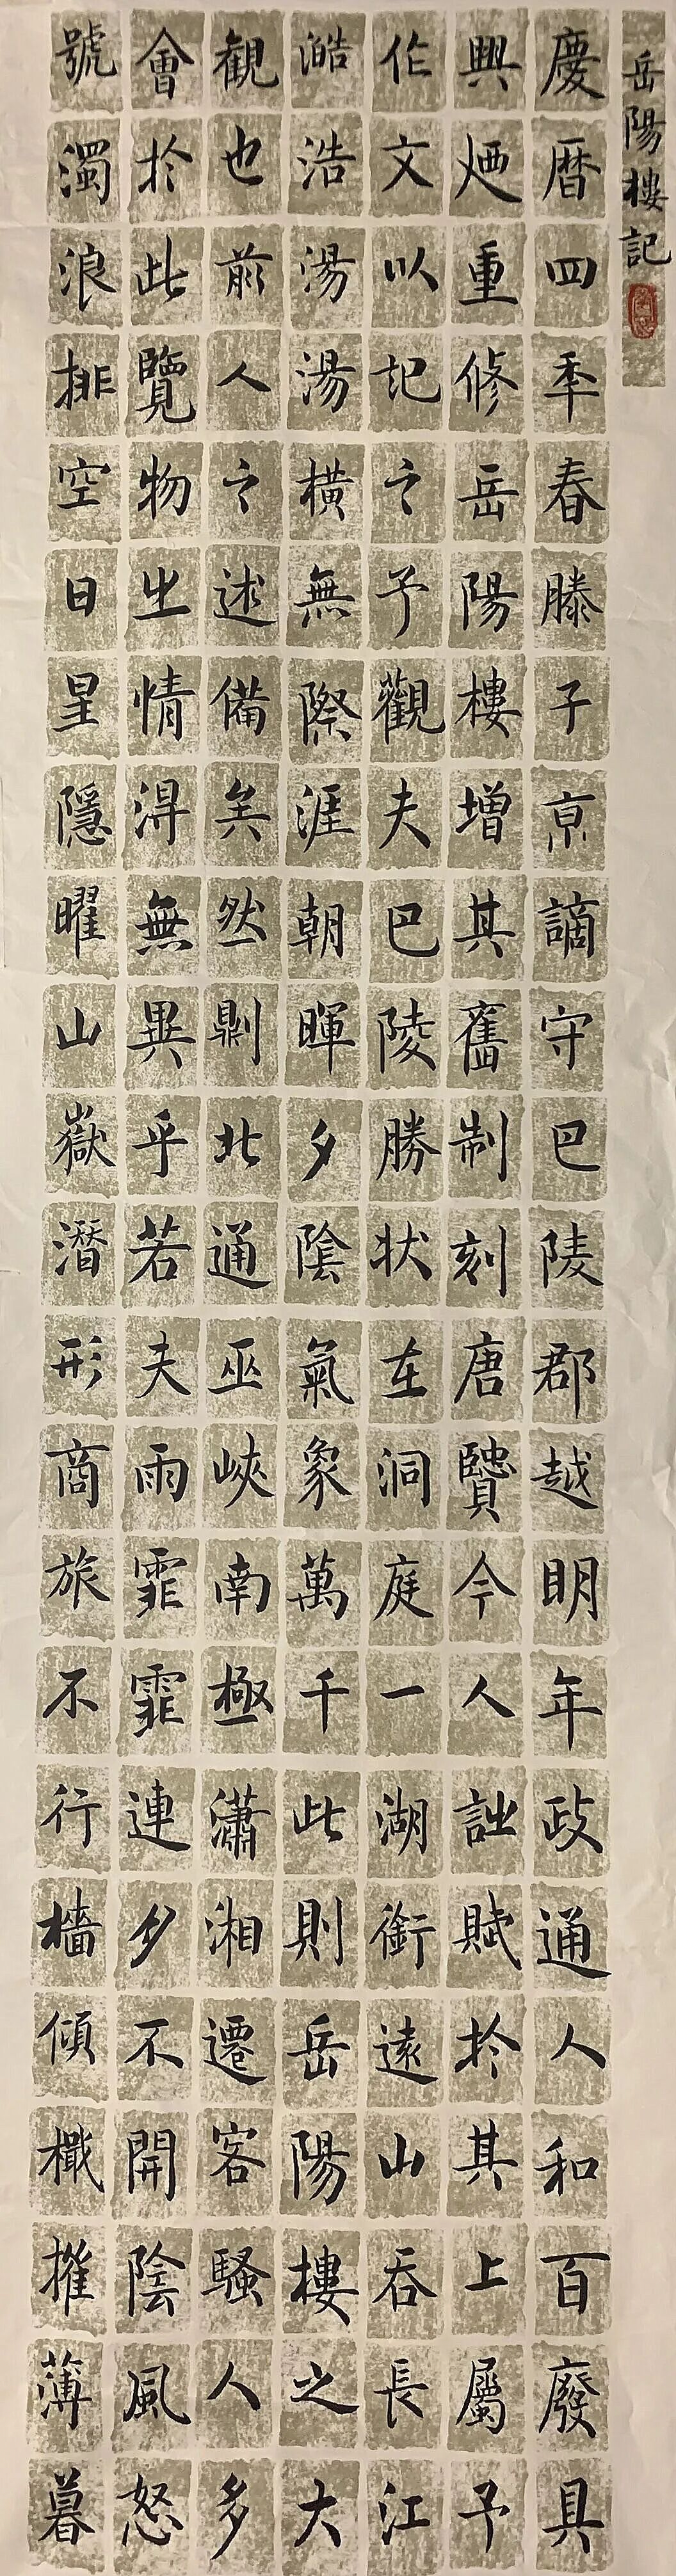 岳陽樓記
慶暦四秊春滕子亰謫守巴陵郡越明年政通人和百廢具
興廼重修岳陽樓增其舊制刻唐賢今人詩賦於其上屬予
作文以記之予觀夫巴陵勝狀在洞庭一湖銜遠山吞長江
澔浩湯湯橫無際涯朝暉夕陰氣象萬千此則岳陽樓之大
觀也前人之述備矣然則北通巫峽南極瀟湘遷客騷人多
會於此覽物之情得無異乎若夫雨霏霏連夕不開陰風怒
號濁浪排空日星隱曜山嶽潛形商旅不行檣傾檝摧薄暮